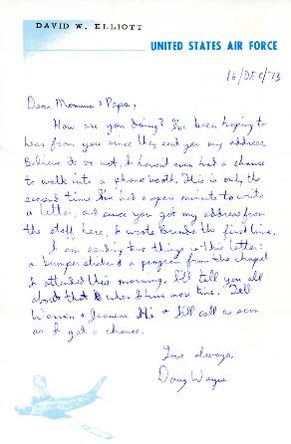 DAVID W. ELLIOTT
UNITED STATES AIR FORCE
16/DEC/73
Dear Momma & Papa,
How are you doing? I've been hoping to
hear from you since they send you my address.
Believe it or not, I haven't even had a chance
to walk into a phone booth. This is only the
second time I've had a spare minute to write
a letter, and since you got my address from
the staff here, I wrote Brenda the first time.
I am sending two things in this letter:
a bumper sticker & a program from the chapel
I attended this morning. I'll tell you all
about that when I have more time. Tell
Warren & Jeanene Hi & I'll call as soon
as I get a chance.
Love always,
Wayne